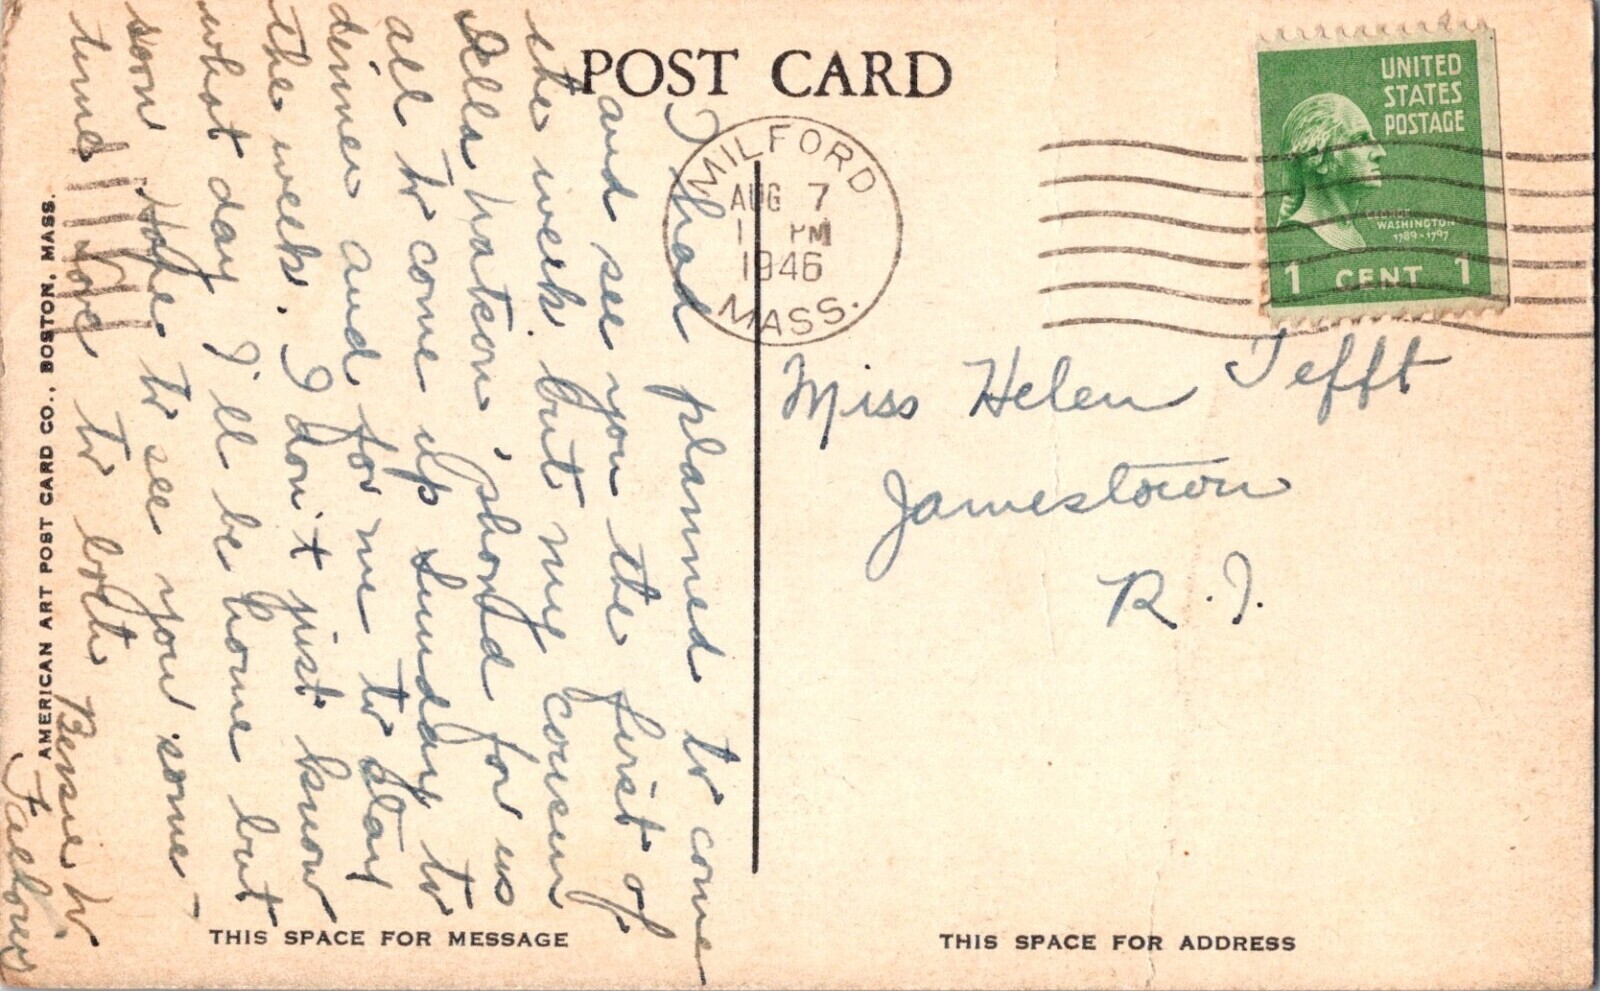 POST CARD
I had planned to come
and see you the first of
the week but my cousin
Ella Watson, phoned for us
all to come up Sunday to
dinner and for me to stay
the week. I don't just know
what day I'll be home but
soon Hope to see you some-
time Love to both
Bessie W.
Fallows
MILFORD
AUG 7
1 PM
1946
MASS.
UNITED
STATES
POSTAGE
GEORGE
WASHINGTON
1789-1797
1 CENT 1
Miss Helen Tefft
Jamestown
R.I.
AMERICAN ART POST CARD CO., BOSTON, MASS.
THIS SPACE FOR MESSAGE
THIS SPACE FOR ADDRESS